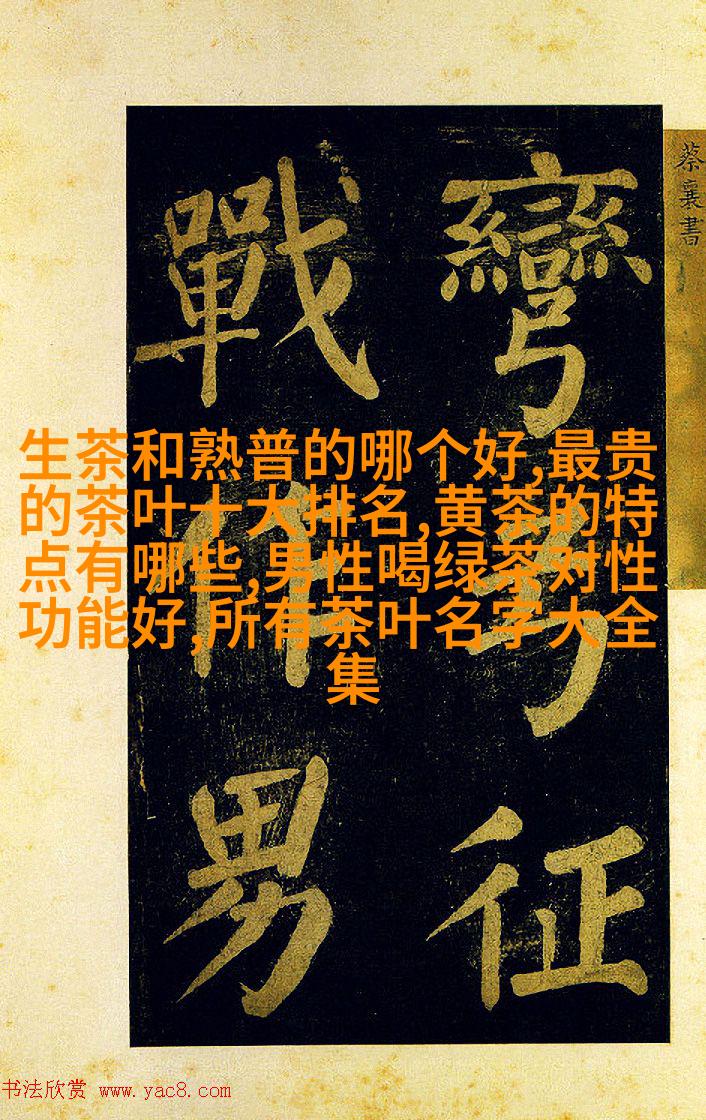 蔡襄書
彎弓征
戰作男
生茶和熟普的哪个好,最贵
的茶叶十大排名,黄茶的特
点有哪些,男性喝绿茶对性
功能好,所有茶叶名字大全
集
书法欣赏 www.yac8.com